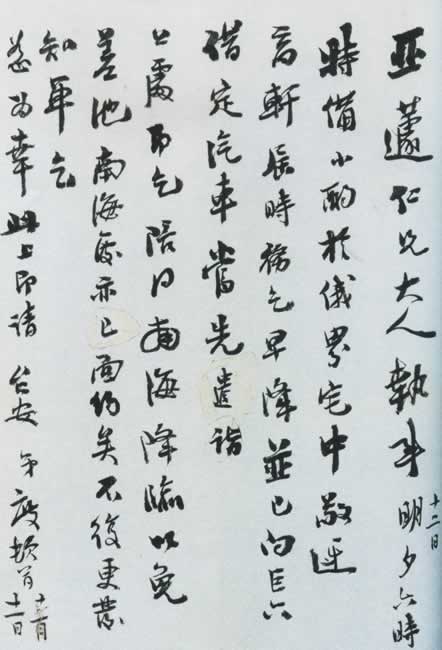 亞蘧仁兄大人執事 十二日 明夕六時
特備小酌於俄界宅中敬迓
高軒屆時務乞早降並已向巨六
借定汽車當先遣詣
公處即乞陪同南海降臨以免
差池南海處亦已面約矣不復更發
知單乞
恕為幸此上即請 台安 弟 頓首 十一日